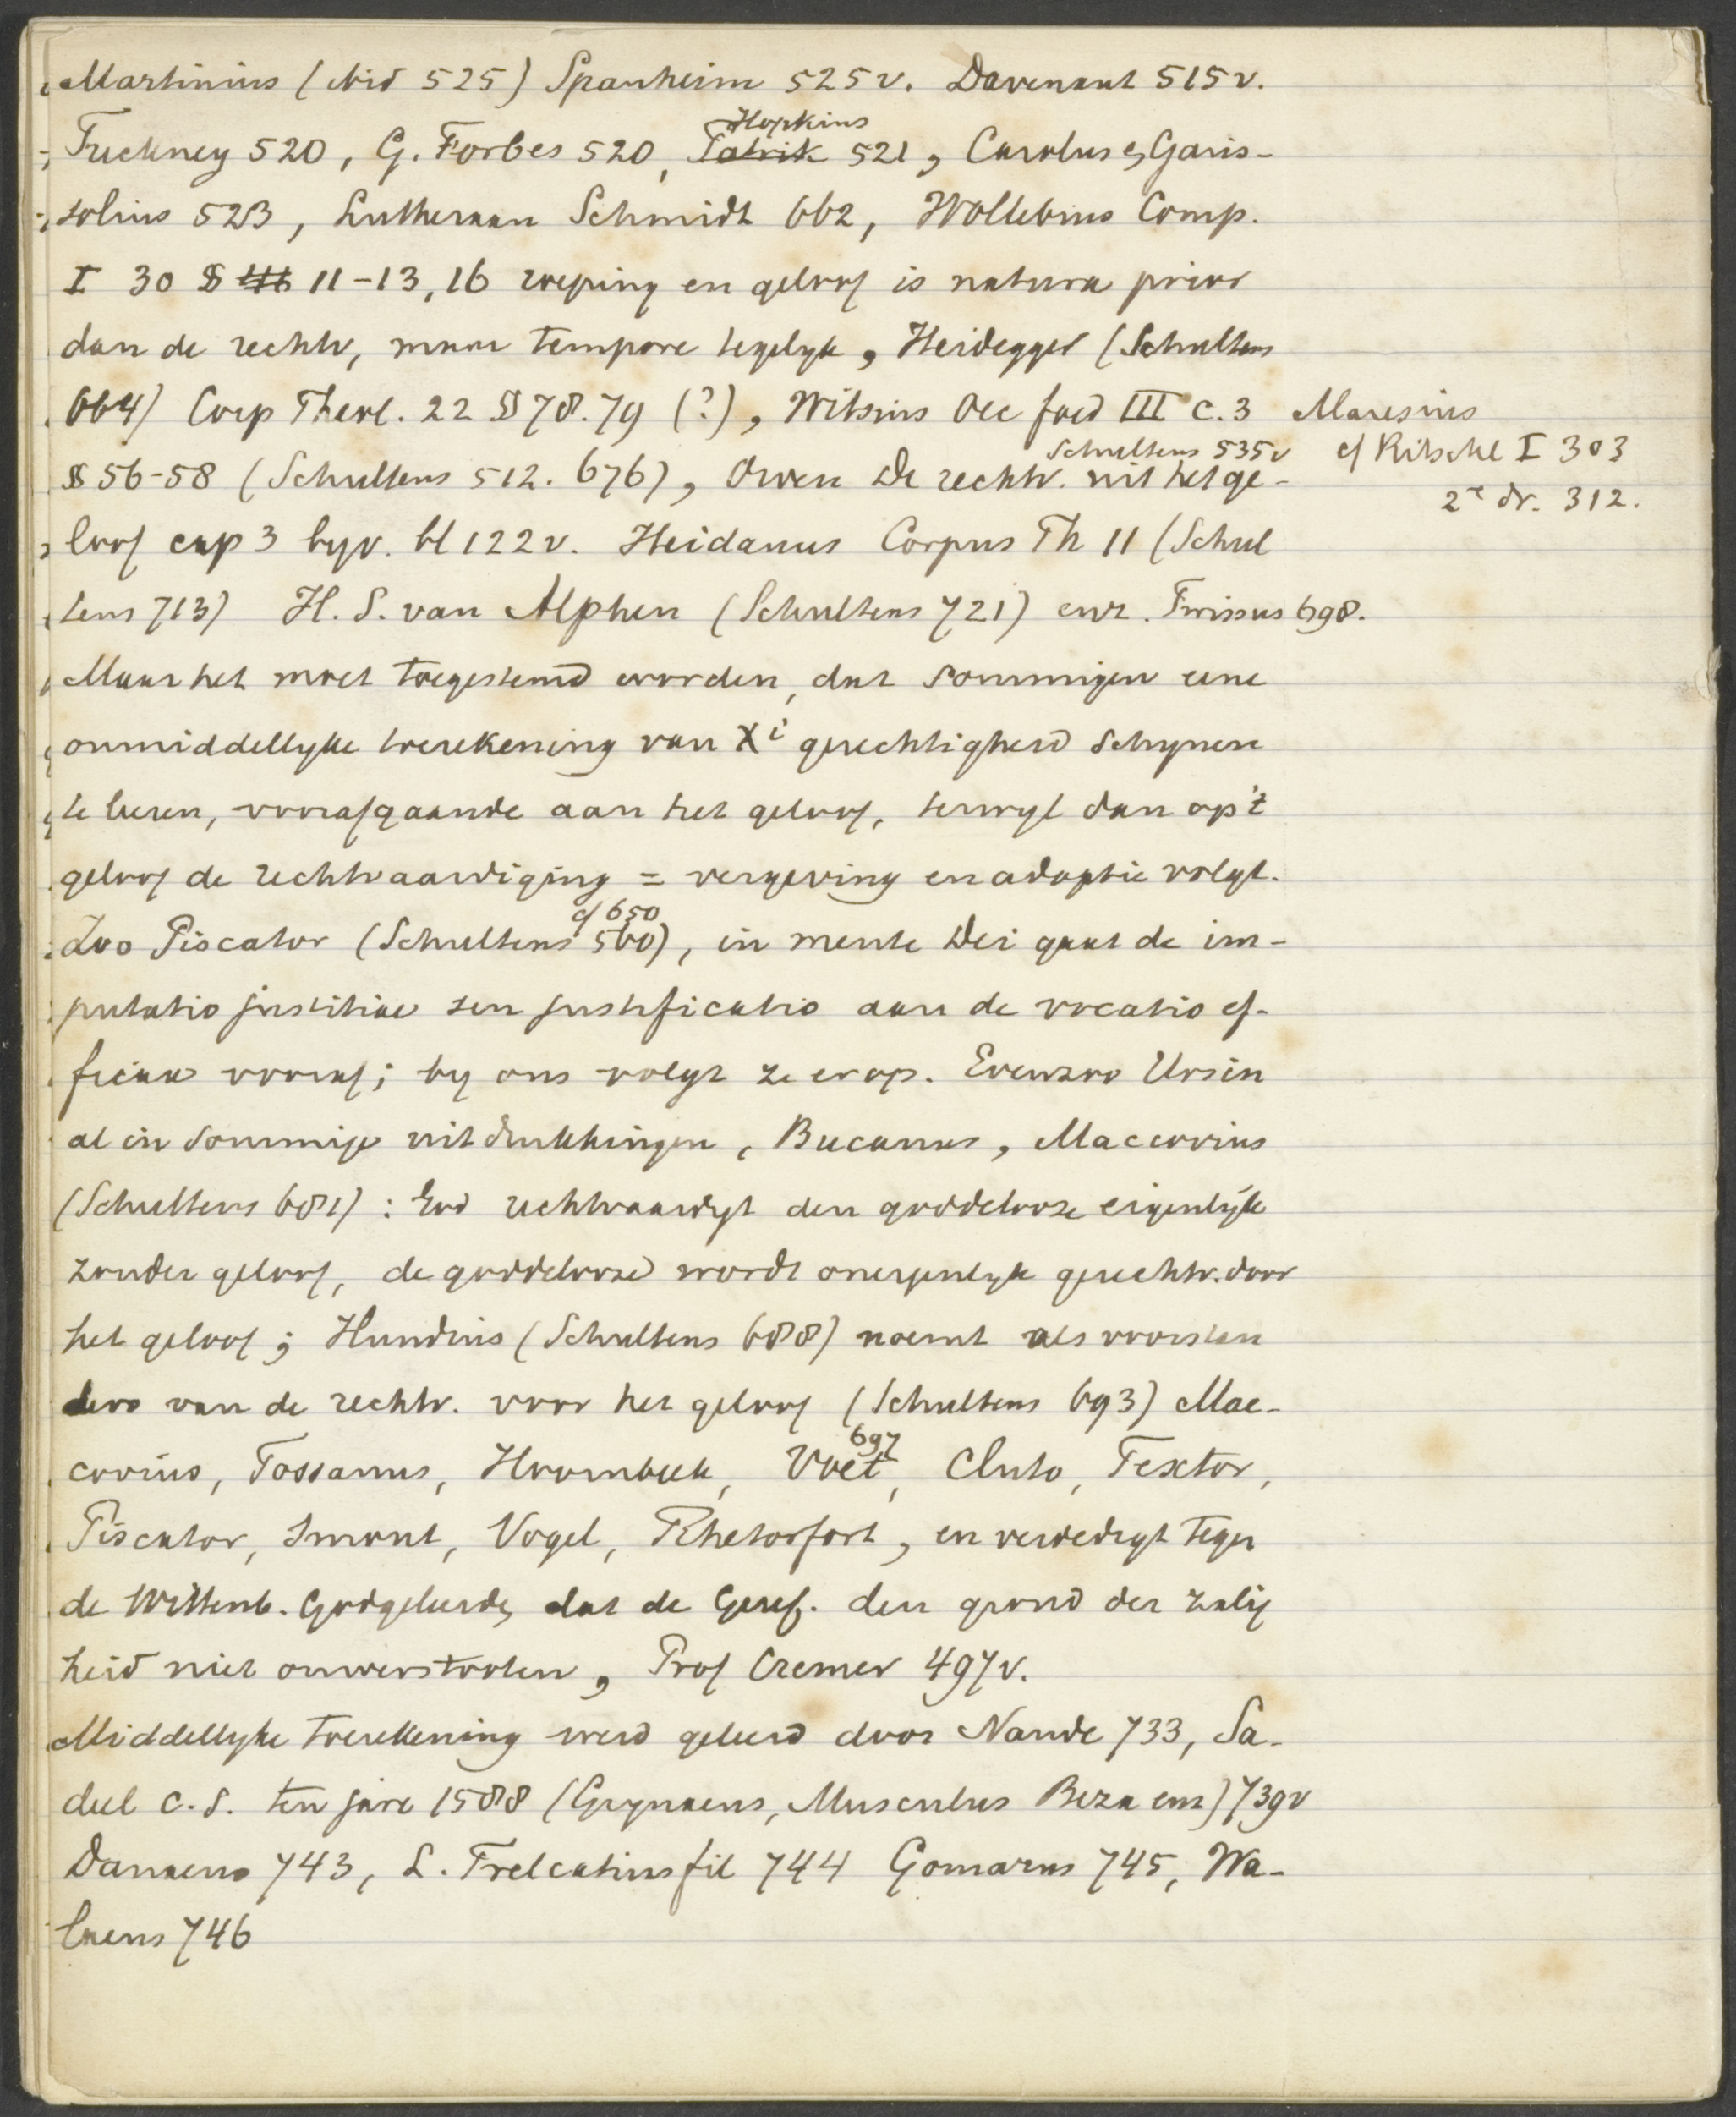 Martinius (ibid 525) Spanheim 525v. Davenant 515v.
Tuckney 520, G. Forbes 520, Patrik Hopkins 521, Carolus, Garis-
solius 523, Lutheraan Schmidt 662, Wollebius Comp.
I 30 § 11-13, 16 roeping en geloof is natura prior
dan de rechtv, maar tempore tegelyk, Heidegger (Schultens
664) Corp Theol. 22 § 78. 79 (?), Witsius Oec foed III c. 3
Maresius
§ 56-58 (Schultens 512. 676), Owen De rechtv. uit het ge-
Schultens 535v
cf Ritschl I 303
2e dr. 312.
loof cap 3 byv. bl 122v. Heidanus Corpus Th 11 (Schul
tens 713) H. S. van Alphen (Schultens 721) enz. Twissus 698.
Maar het moet toegestemd worden, dat sommigen eene
onmiddellyke toerekening van Xi gerechtigheid schynen
te leeren, voorafgaande aan het geloof, terwyl dan op 't
geloof de rechtvaardiging = vergeving en adoptie volgt.
Zoo Piscator (Schultens 560 cf 650), in mente Dei gaat de im-
putatio justitiae seu justificatio aan de vocatio ef-
ficax vooraf; by ons volgt ze erop. Evenzoo Ursin
al in sommige uitdrukkingen, Bucanus, Maccovius
(Schultens 681): God rechtvaardigt den goddelooze eigenlyk
zonder geloof, de goddelooze wordt oneigenlyk gerechtv. door
het geloof; Hundius (Schultens 688) noemt als voorstan
ders van de rechtv. voor het geloof (Schultens 693) Mac-
covius, Tossanus, Hoornbeek, Voet 697, Cluto, Textor,
Piscator, Smout, Vogel, Rhetorfort, en verdedigt tegen
de Wittenb. Godgeleerde, dat de Geref. den grond der zalig
heid niet omverstooten, Prof Cremer 497v.
Middellyke toerekening werd geleerd door Naude 733, Sa-
deel c.s. ten jare 1588 (Grynaeus, Musculus Beza enz) 739v
Danaeus 743, L. Trelcatius fil 744 Gomarus 745, Wa-
laeus 746